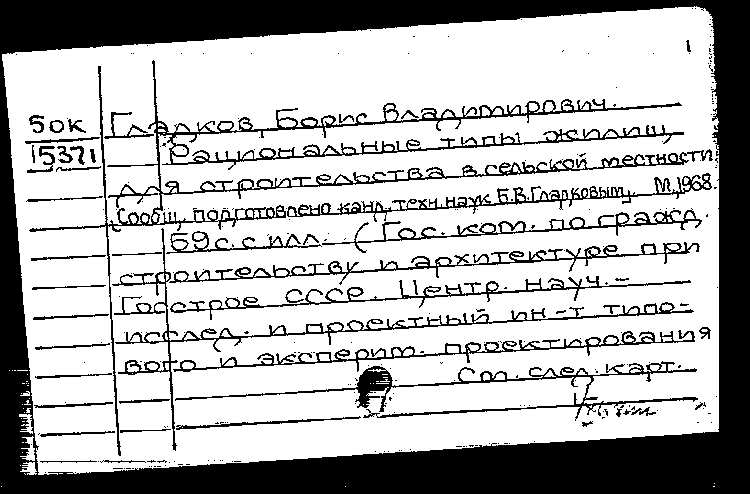 1
50К Гладков, Борис Владимирович.
15371 Рациональные типы жилищ
для строительства в сельской местности
(Сообщ. подготовлено канд. техн. наук Б.В. Гладковым). М., 1968.
59 с. с илл. (Гос. ком. по гражд.
строительству и архитектуре при
Госстрое СССР. Центр. науч.-
исслед. и проектный ин-т типо-
вого и эксперим. проектирования
См. след. карт.